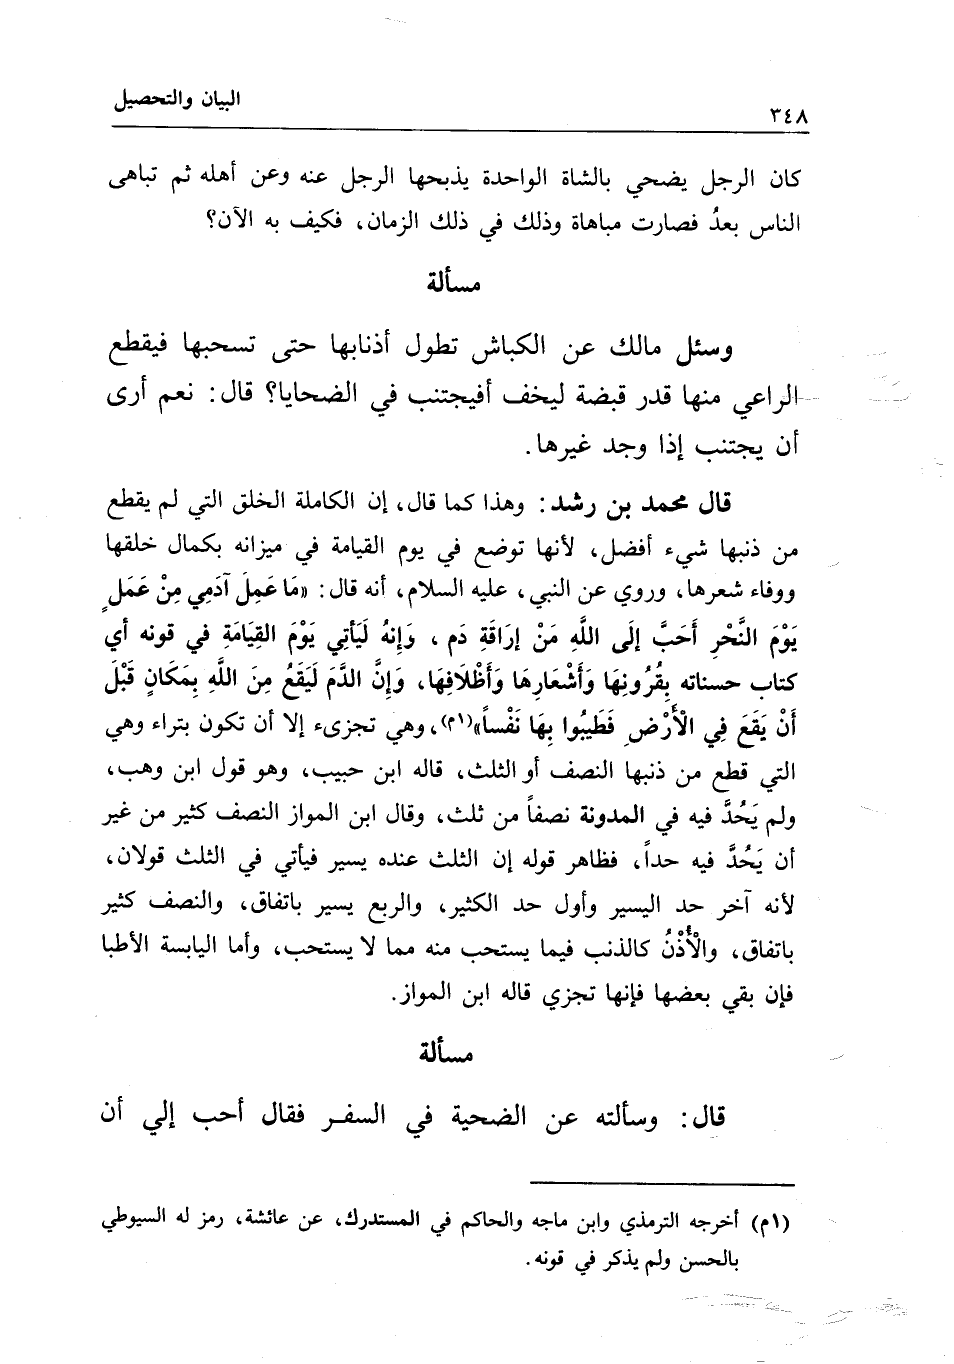 البيان والتحصيل
٣٤٨
كان الرجل يضحي بالشاة الواحدة يذبحها الرجل عنه وعن أهله ثم تباهى
الناس بعدُ فصارت مباهاة وذلك في ذلك الزمان، فكيف به الآن؟
مسألة
وسئل مالك عن الكباش تطول أذنابها حتى تسحبها فيقطع
الراعي منها قدر قبضة ليخف أفيجتنب في الضحايا؟ قال: نعم أرى
أن يجتنب إذا وجد غيرها.
قال محمد بن رشد: وهذا كما قال، إن الكاملة الخلق التي لم يقطع
من ذنبها شيء أفضل، لأنها توضع في يوم القيامة في ميزانه بكمال خلقها
ووفاء شعرها، وروي عن النبي، عليه السلام، أنه قال: «مَا عَمِلَ آدَمِي مِنْ عَمَلٍ
يَوْمَ النَّحْرِ أَحَبَّ إِلَى اللَّهِ مَنْ إرَاقَةِ دَمٍ، وَإِنهُ لَيَأتِي يَوْمَ القِيَامَةِ في قونه أي
كتاب حسناته بِقُرُونِهَا وَأَشْعَارِهَا وَأَظْلَافِهَا، وَإِنَّ الدَّمَ لَيَقَعُ مِنَ اللَّهِ بِمَكَانٍ قَبْلَ
أَنْ يَقَعَ فِي الْأَرْضِ فَطَيبُوا بِهَا نَفْساً»(١م)، وهي تجزىء إلا أن تكون بتراء وهي
التي قطع من ذنبها النصف أو الثلث، قاله ابن حبيب، وهو قول ابن وهب،
ولم يَحُدَّ فيه في المدونة نصفاً من ثلث، وقال ابن المواز النصف كثير من غير
أن يَحُدَّ فيه حداً، فظاهر قوله إن الثلث عنده يسير فيأتي في الثلث قولان،
لأنه آخر حد اليسير وأول حد الكثير، والربع يسير باتفاق، والنصف كثير
باتفاق، والْأُذْنُ كالذنب فيما يستحب منه مما لا يستحب، وأما اليابسة الأطبا
فإن بقي بعضها فإنها تجزي قاله ابن المواز.
مسألة
قال: وسألته عن الضحية في السفر فقال أحب إلي أن
(١م) أخرجه الترمذي وابن ماجه والحاكم في المستدرك، عن عائشة، رمز له السيوطي
بالحسن ولم يذكر في قونه.